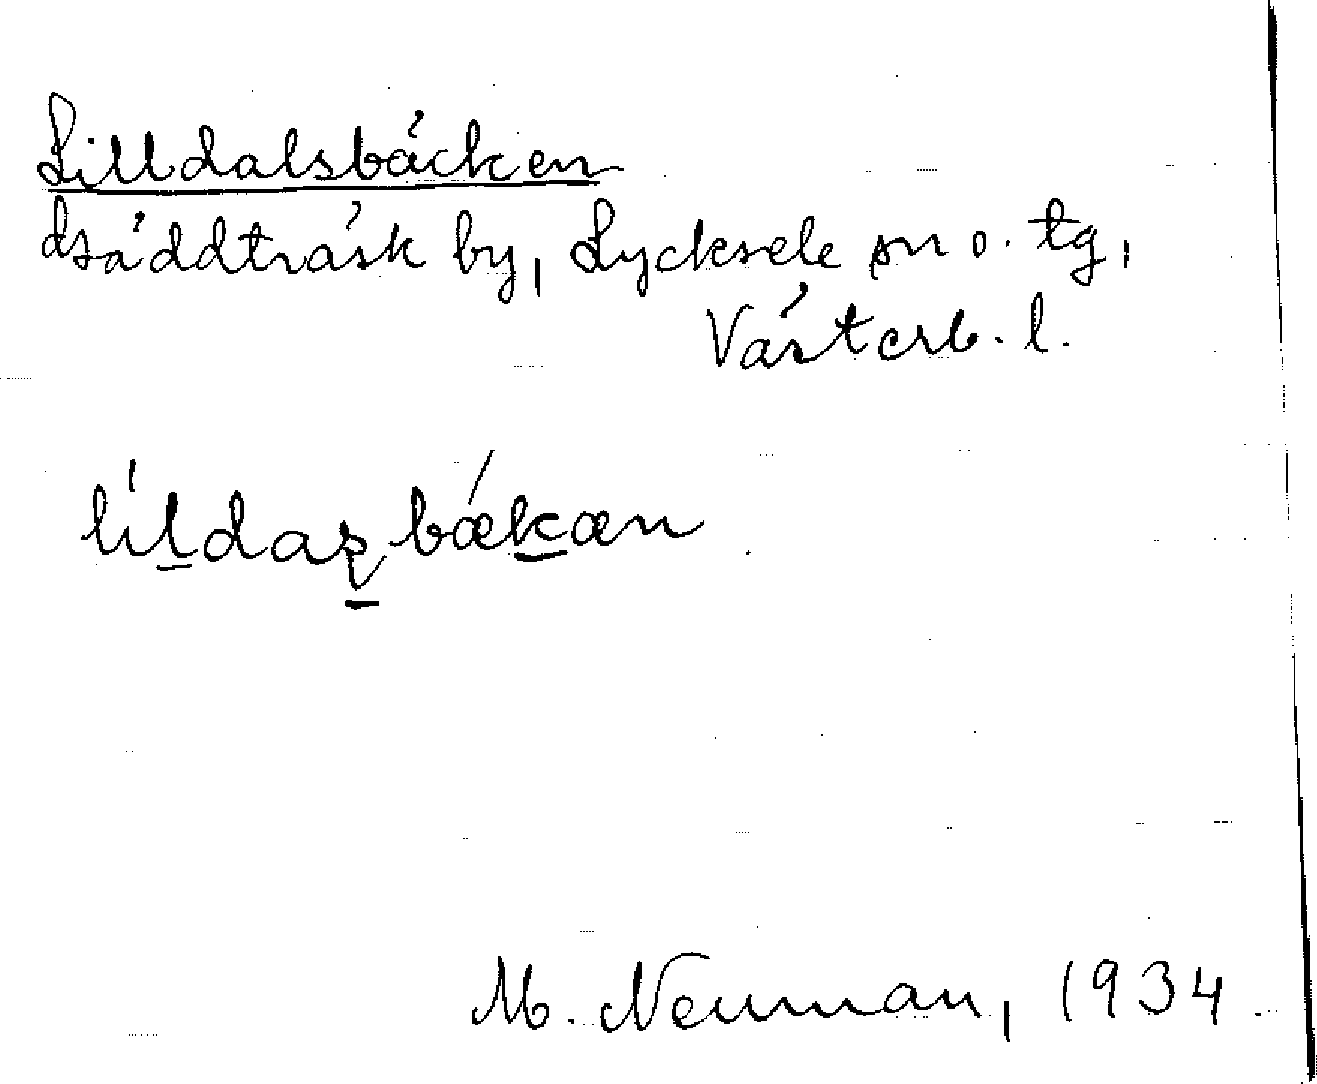 Lilldalsbäcken
Gäddträsk by, Lycksele sn o. tg,
Västerb. l.
líḻdaʂ̱bǽḵæn
M. Neuman, 1934